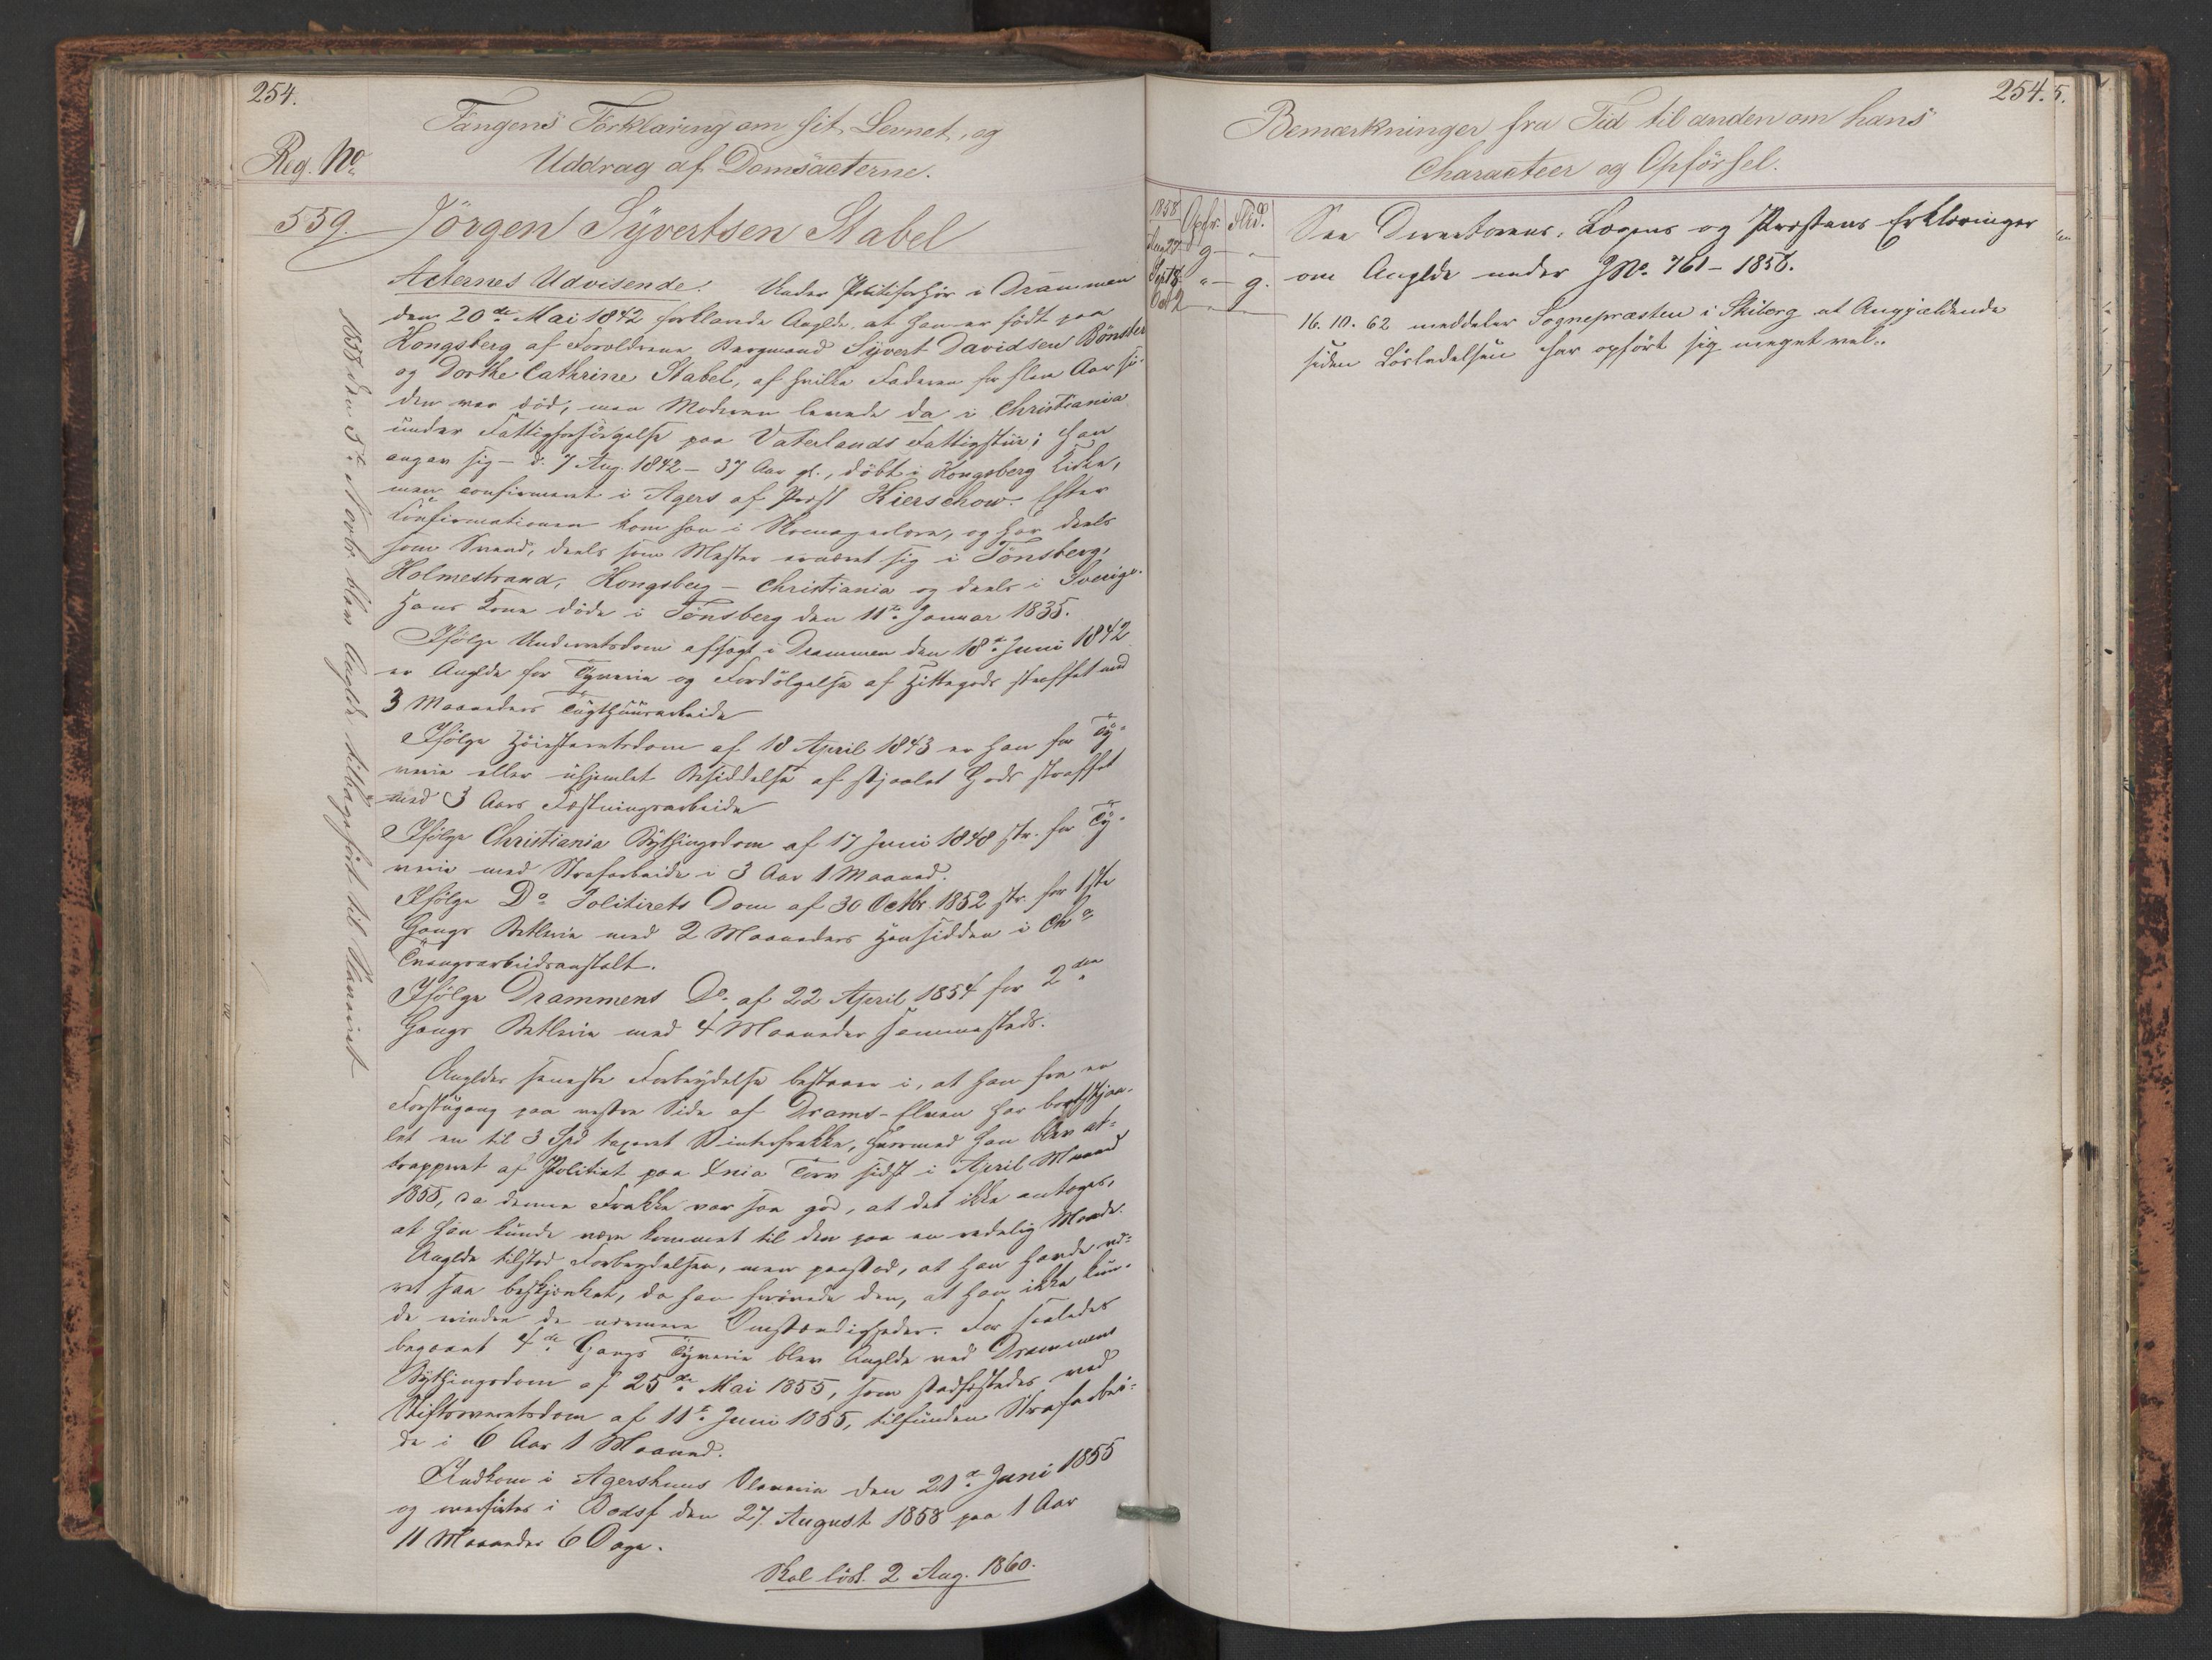 254.
Fangens Forklaring om sit Levnet, og
Reg. No
Uddrag af Domsacterne.
559. Jörgen Syvertsen Stabel
Acternes Udvisende: Under Politiforhör i Drammen
den 20de Mai 1842 forklarede Anglde, at han er födt paa
Kongsberg af Forældrene Bergmand Syvert Davidsen
og Dorthe Cathrine Stabel, af hvilke Faderen for flere Aar si-
den var död, men Moderen levede da i Christiania
under Fattigforsörgelse paa Vaterlands Fattigstue; han
angav sig - d. 7 Aug. 1842 - 37 Aar gl., döbt i Kongsberg Kirke,
men confirmeret i Agers af Provst Kierschow. Efter
Confirmationen kom han i Skomagerlære, og har deels
som Svend, deels som Mester ernæret sig i Tönsberg,
Holmestrand, Kongsberg - Christiania og deels i Sverige.
Hans Kone döde i Tönsberg den 11te Januar 1835.
Ifölge Underretsdom afsagt i Drammen den 18de Juni 1842
er Anglde for Tyverie og Fordölgelse af Hittegods straffet med
3 Maaneders Tugthuusarbeide
Ifölge Höiesteretsdom af 18 April 1843 er han for Ty-
verie eller uhjemlet Besiddelse af stjaalet Gods straffet
med 3 Aars Fæstningsarbeide
Ifölge Christiania Bythingsdom af 17 Juni 1848 str. for Ty-
verie med Strafarbeide i 3 Aar 1 Maaned.
Ifölge Do Politirets Dom af 30 Octbr. 1852 str. for 1ste
Gangs Betlerie med 2 Maaneders Hensidden i Cha
Tvangsarbeidsanstalt.
Ifölge Drammens Do. af 22 April 1854 for 2den
Gangs Betlerie med 4 Maaneder sammesteds.
Angldes seneste Forbrydelse bestaaer i, at han fra en
Forstugang paa vestre Side af Drams-Elven har bortstjaa-
let en til 3 Spd taxeret Vinterfrakke, hvormed han blev at-
trapperet af Politiet paa Xnia Torv sidst i April Maaned
1855, da denne Frakke var saa god, at det ikke antoges,
at han kunde være kommet til den paa en redelig Maade.
Anglde tilstod Forbrydelsen, men paastod, at han havde væ-
ret saa beskjenket, da han den, at han ikke kun-
de erindre de nærmere Omstændigheder. For saaledes
begaaet 4de Gangs Tyverie blev Anglde ved Drammens
Bythingsdom af 25de Mai 1855, som stadfæstedes ved
Stiftsoverretsdom af 11te Juni 1855, tilfunden Strafarbei-
de i 6 Aar 1 Maaned.
Indkom i Agershuus Slaverie den 21de Juni 1855
og overförtes i Bodsf den 27. August 1858 paa 1 Aar
11 Maaneder 6 Dage.
Skal lösl. 2 Aug. 1860.
1858 den 5te Novbr blev Anglde tilbageført til Slaveriet
254.
5.
Bemærkninger fra Tid til anden om hans
Characteer og Opförsel.
1858 Opfr. Flid.
Aug 27 g -
Sept 18 " - g.
Oct 2
See Directeurens, Lægens og Præstens Erklæringer
om Anglde under JNo. 761 - 1858.
16.10.62 meddeler Sognepræsten i Skiberg at Angjældende
siden Lösladelsen har opfört sig meget vel.